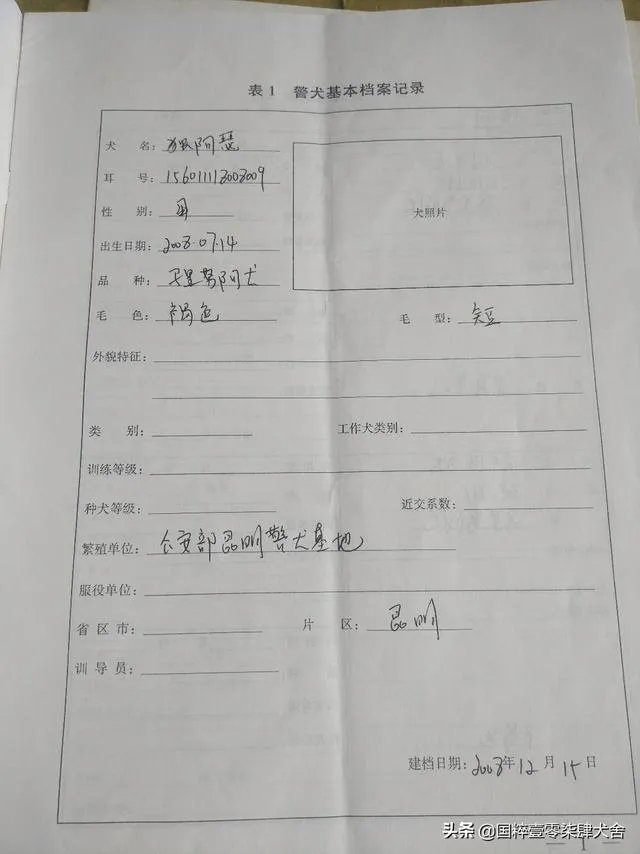 表1 警犬基本档案记录
犬 名：独阿瑟
耳 号：15601111303009
犬照片
性 别：
出生日期：2008.07.14
品 种：
毛 色：褐色
毛 型：短
外貌特征：
类 别：
工作犬类别：
训练等级：
种犬等级：
近交系数：
繁殖单位：公安部昆明警犬基地
服役单位：
省 区 市：
片 区：昆明
训 导 员：
建档日期：2008年12月15日
头条 @国粹壹零柒肆犬舍
— 1 —